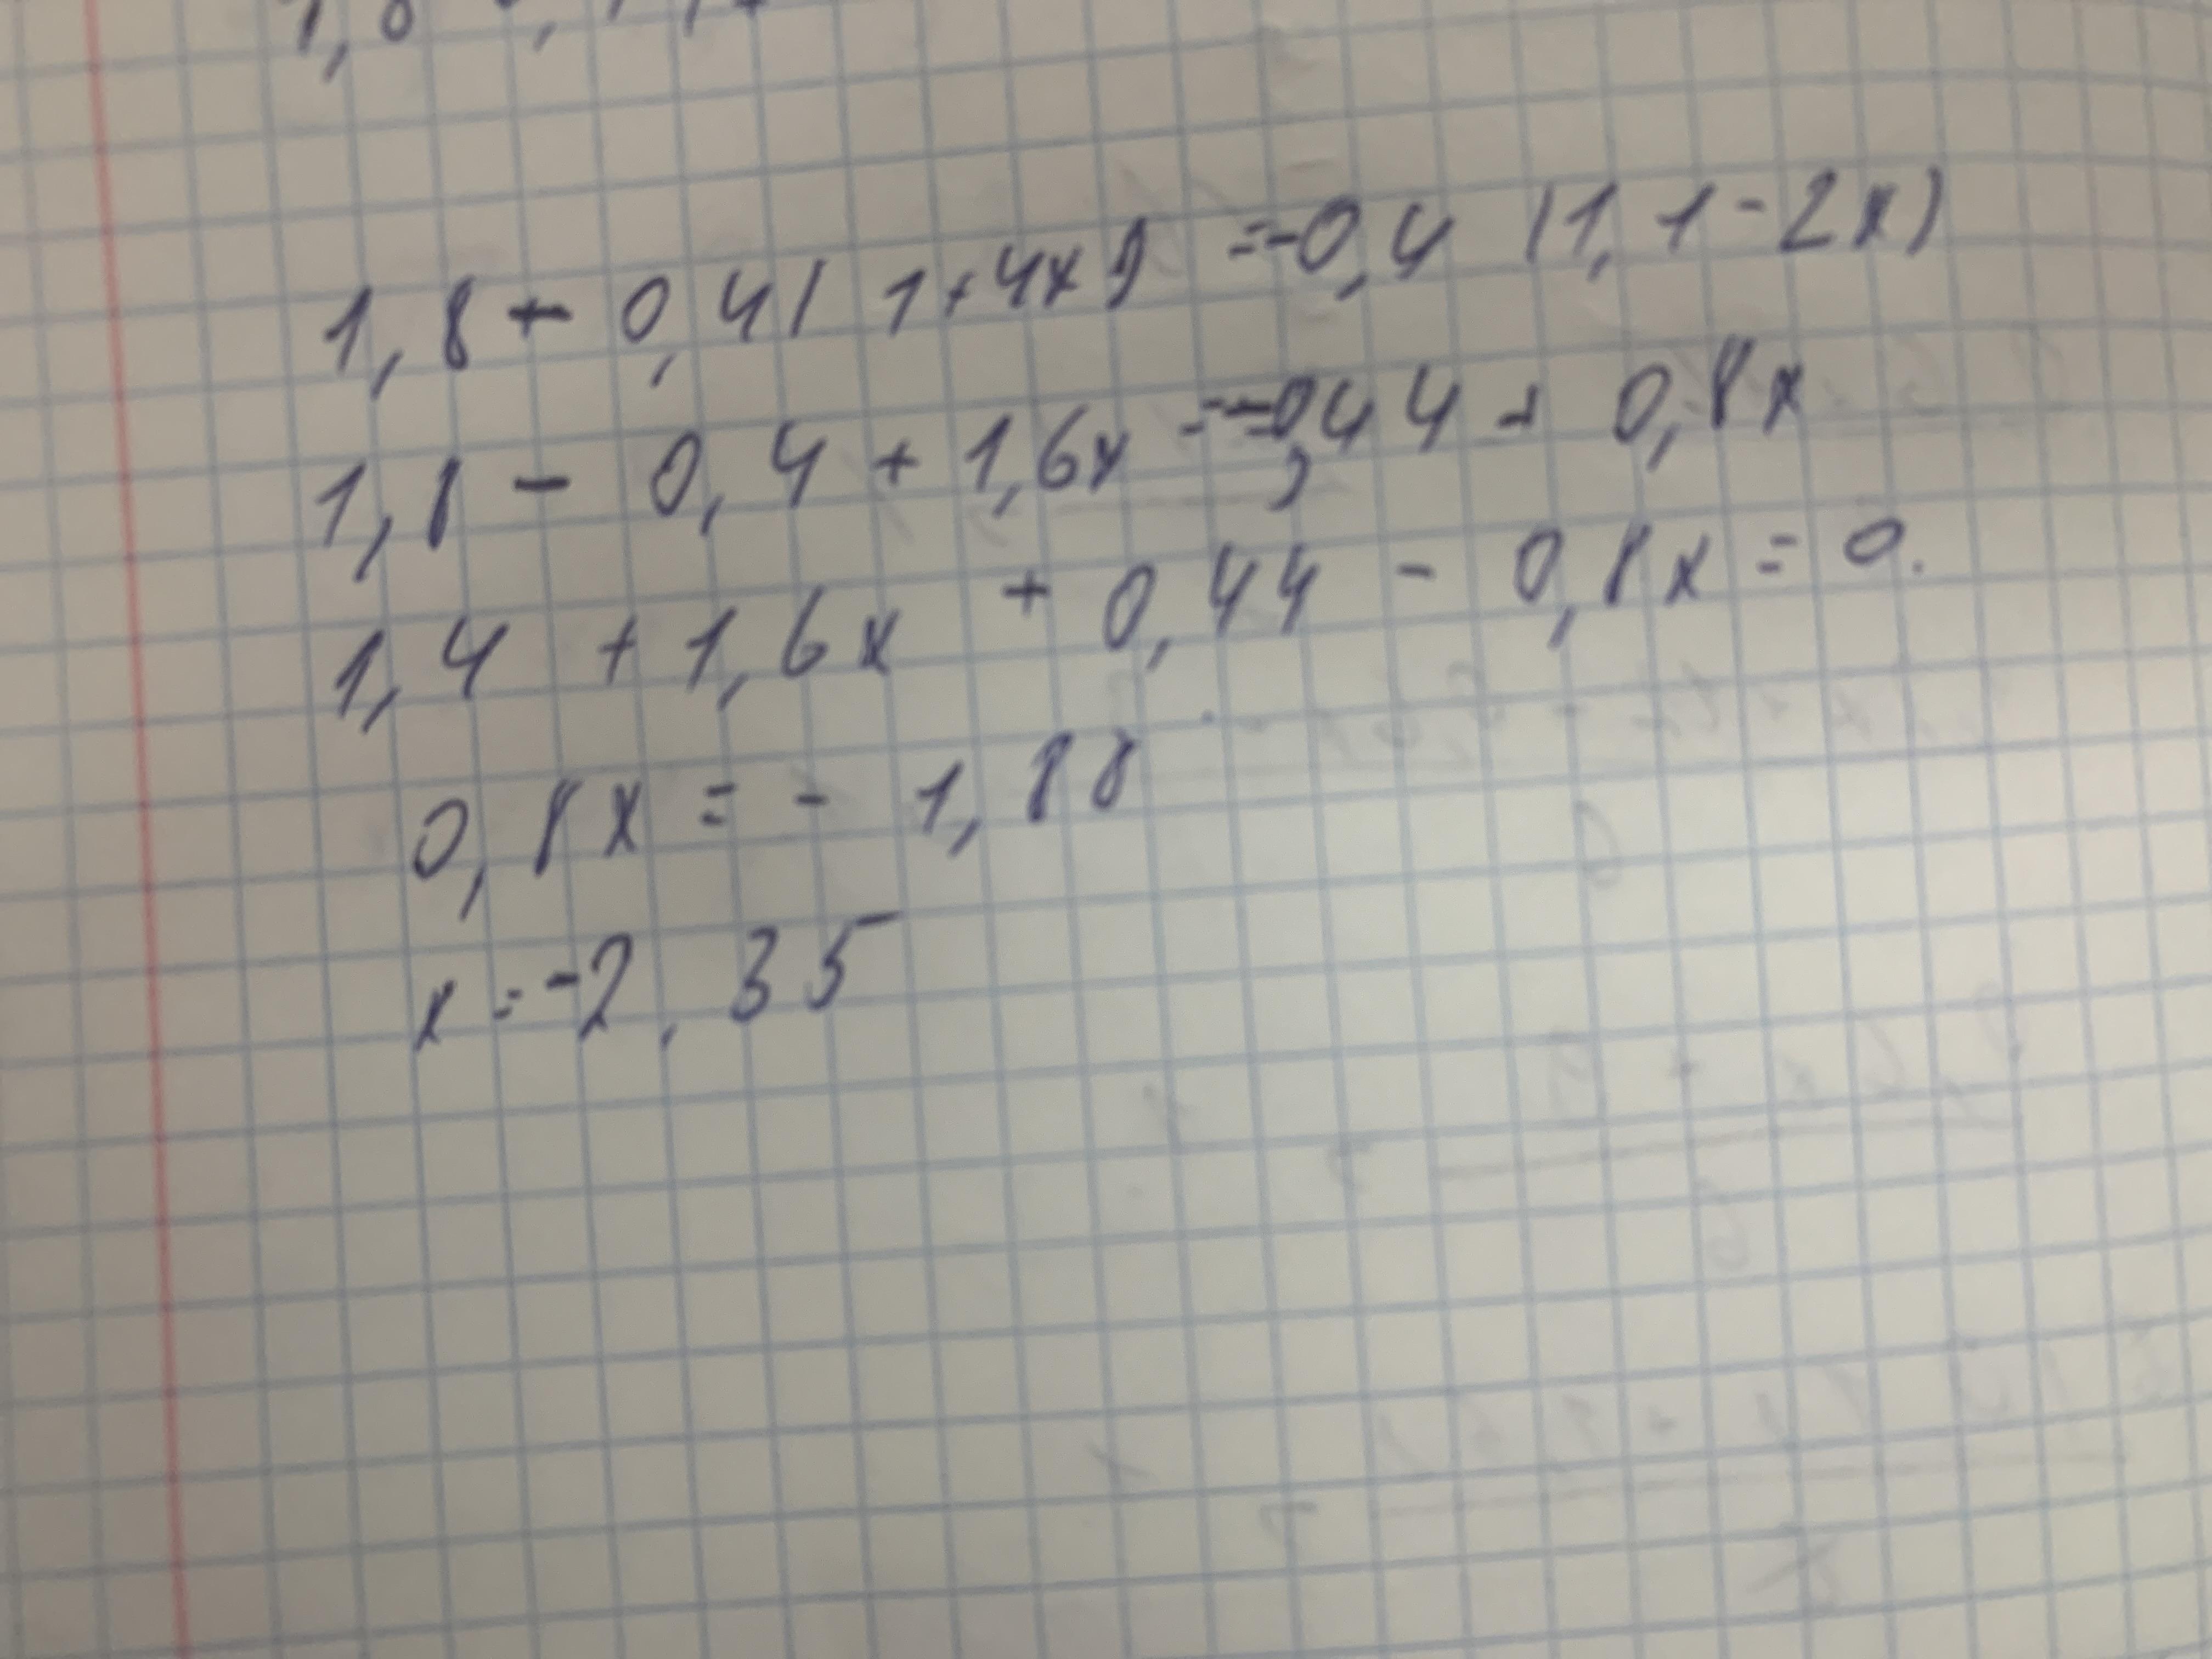 1,8 - 0,4(1+4x) =-0,4 (1,1-2x)
1,8 - 0,4 + 1,6x =-0,44 + 0,8x
1,4 + 1,6x + 0,44 - 0,8x = 0.
0,8x = - 1,88
x = -2,35